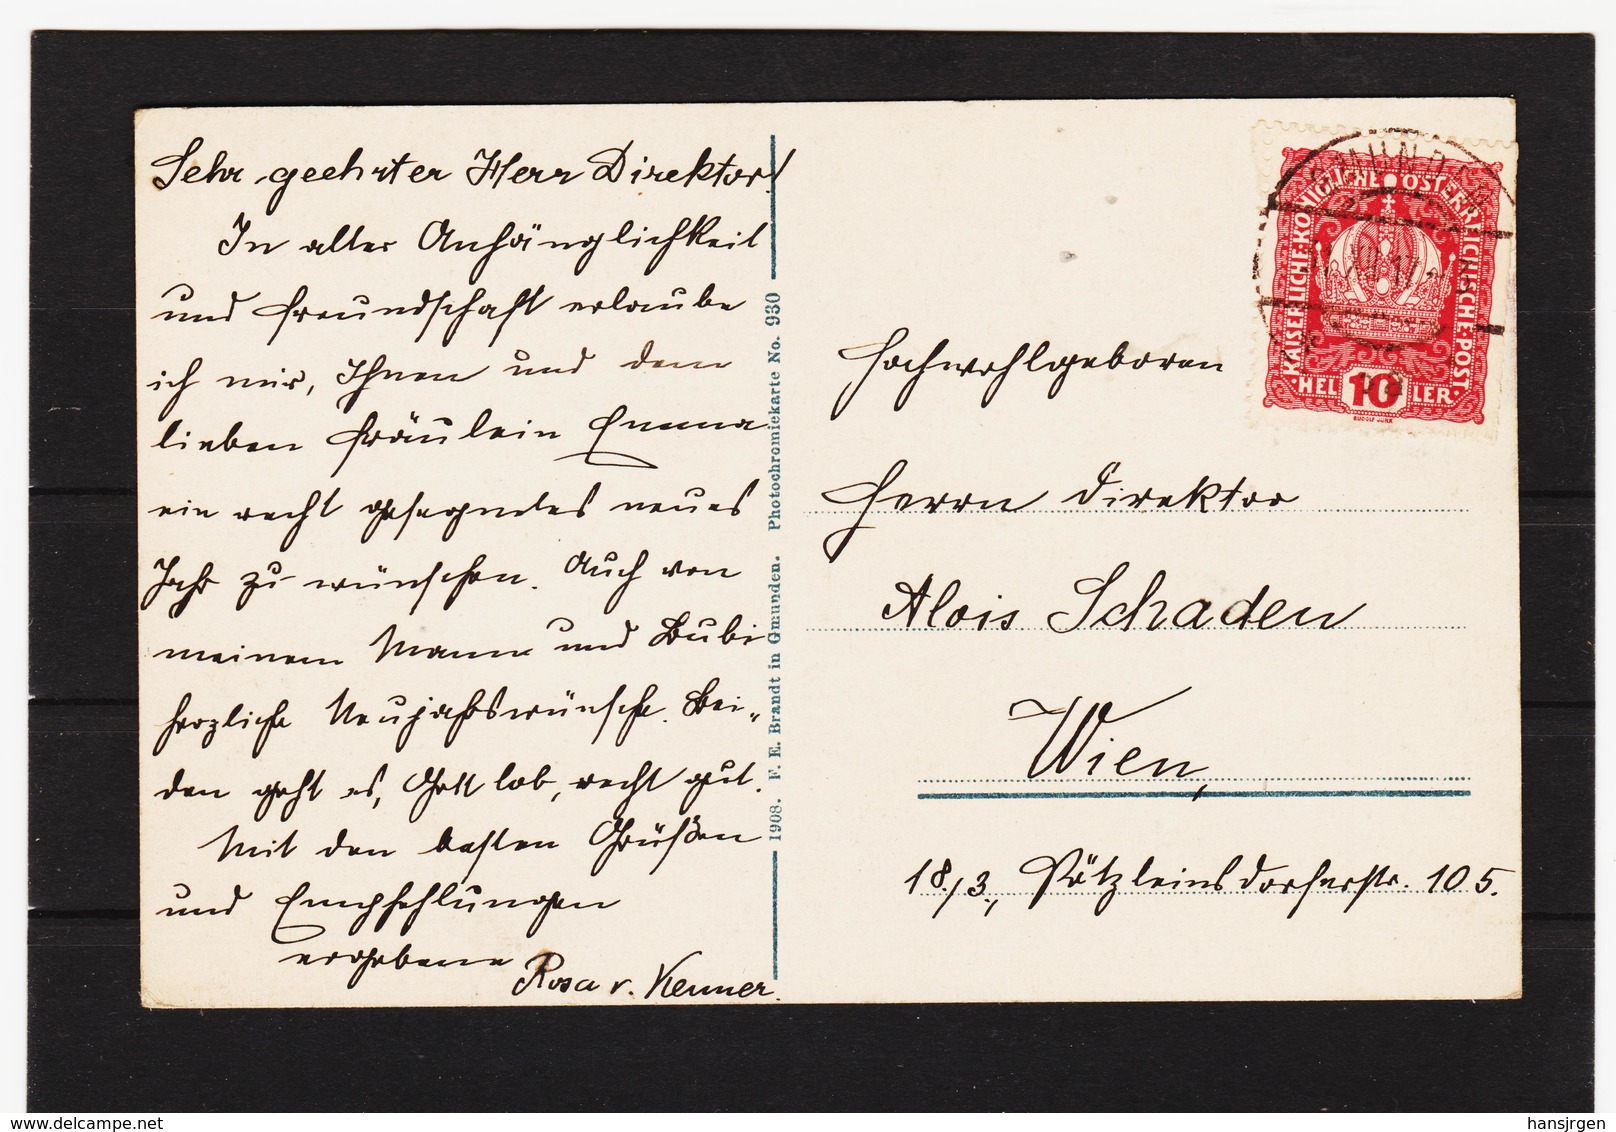 Sehr geehrter Herr Direktor!
In alter Anhänglichkeit
und Freundschaft erlaube
ich mir, Ihnen und dem
lieben Fräulein Emma
ein recht gesegnetes neues
Jahr zu wünschen. Auch von
meinem Mann und Bubi
herzliche Neujahrswünsche. Bei-
den geht es, Gott lob, recht gut.
Mit den besten Grüßen
und Empfehlungen
ergebene
Rosa v. Kenner.
1908. F. E. Brandt in Gmunden. Photochromiekarte No. 930
KAISERLICHE·KÖNIGLICHE ÖSTERREICHISCHE·POST·
·HEL 10 LER·
RUDOLF JUNK
GMUNDEN
Hochwohlgeboren
Herrn Direktor
Alois Schaden
Wien,
18./3., Pötzleinsdorferstr. 105.
hansjrgen